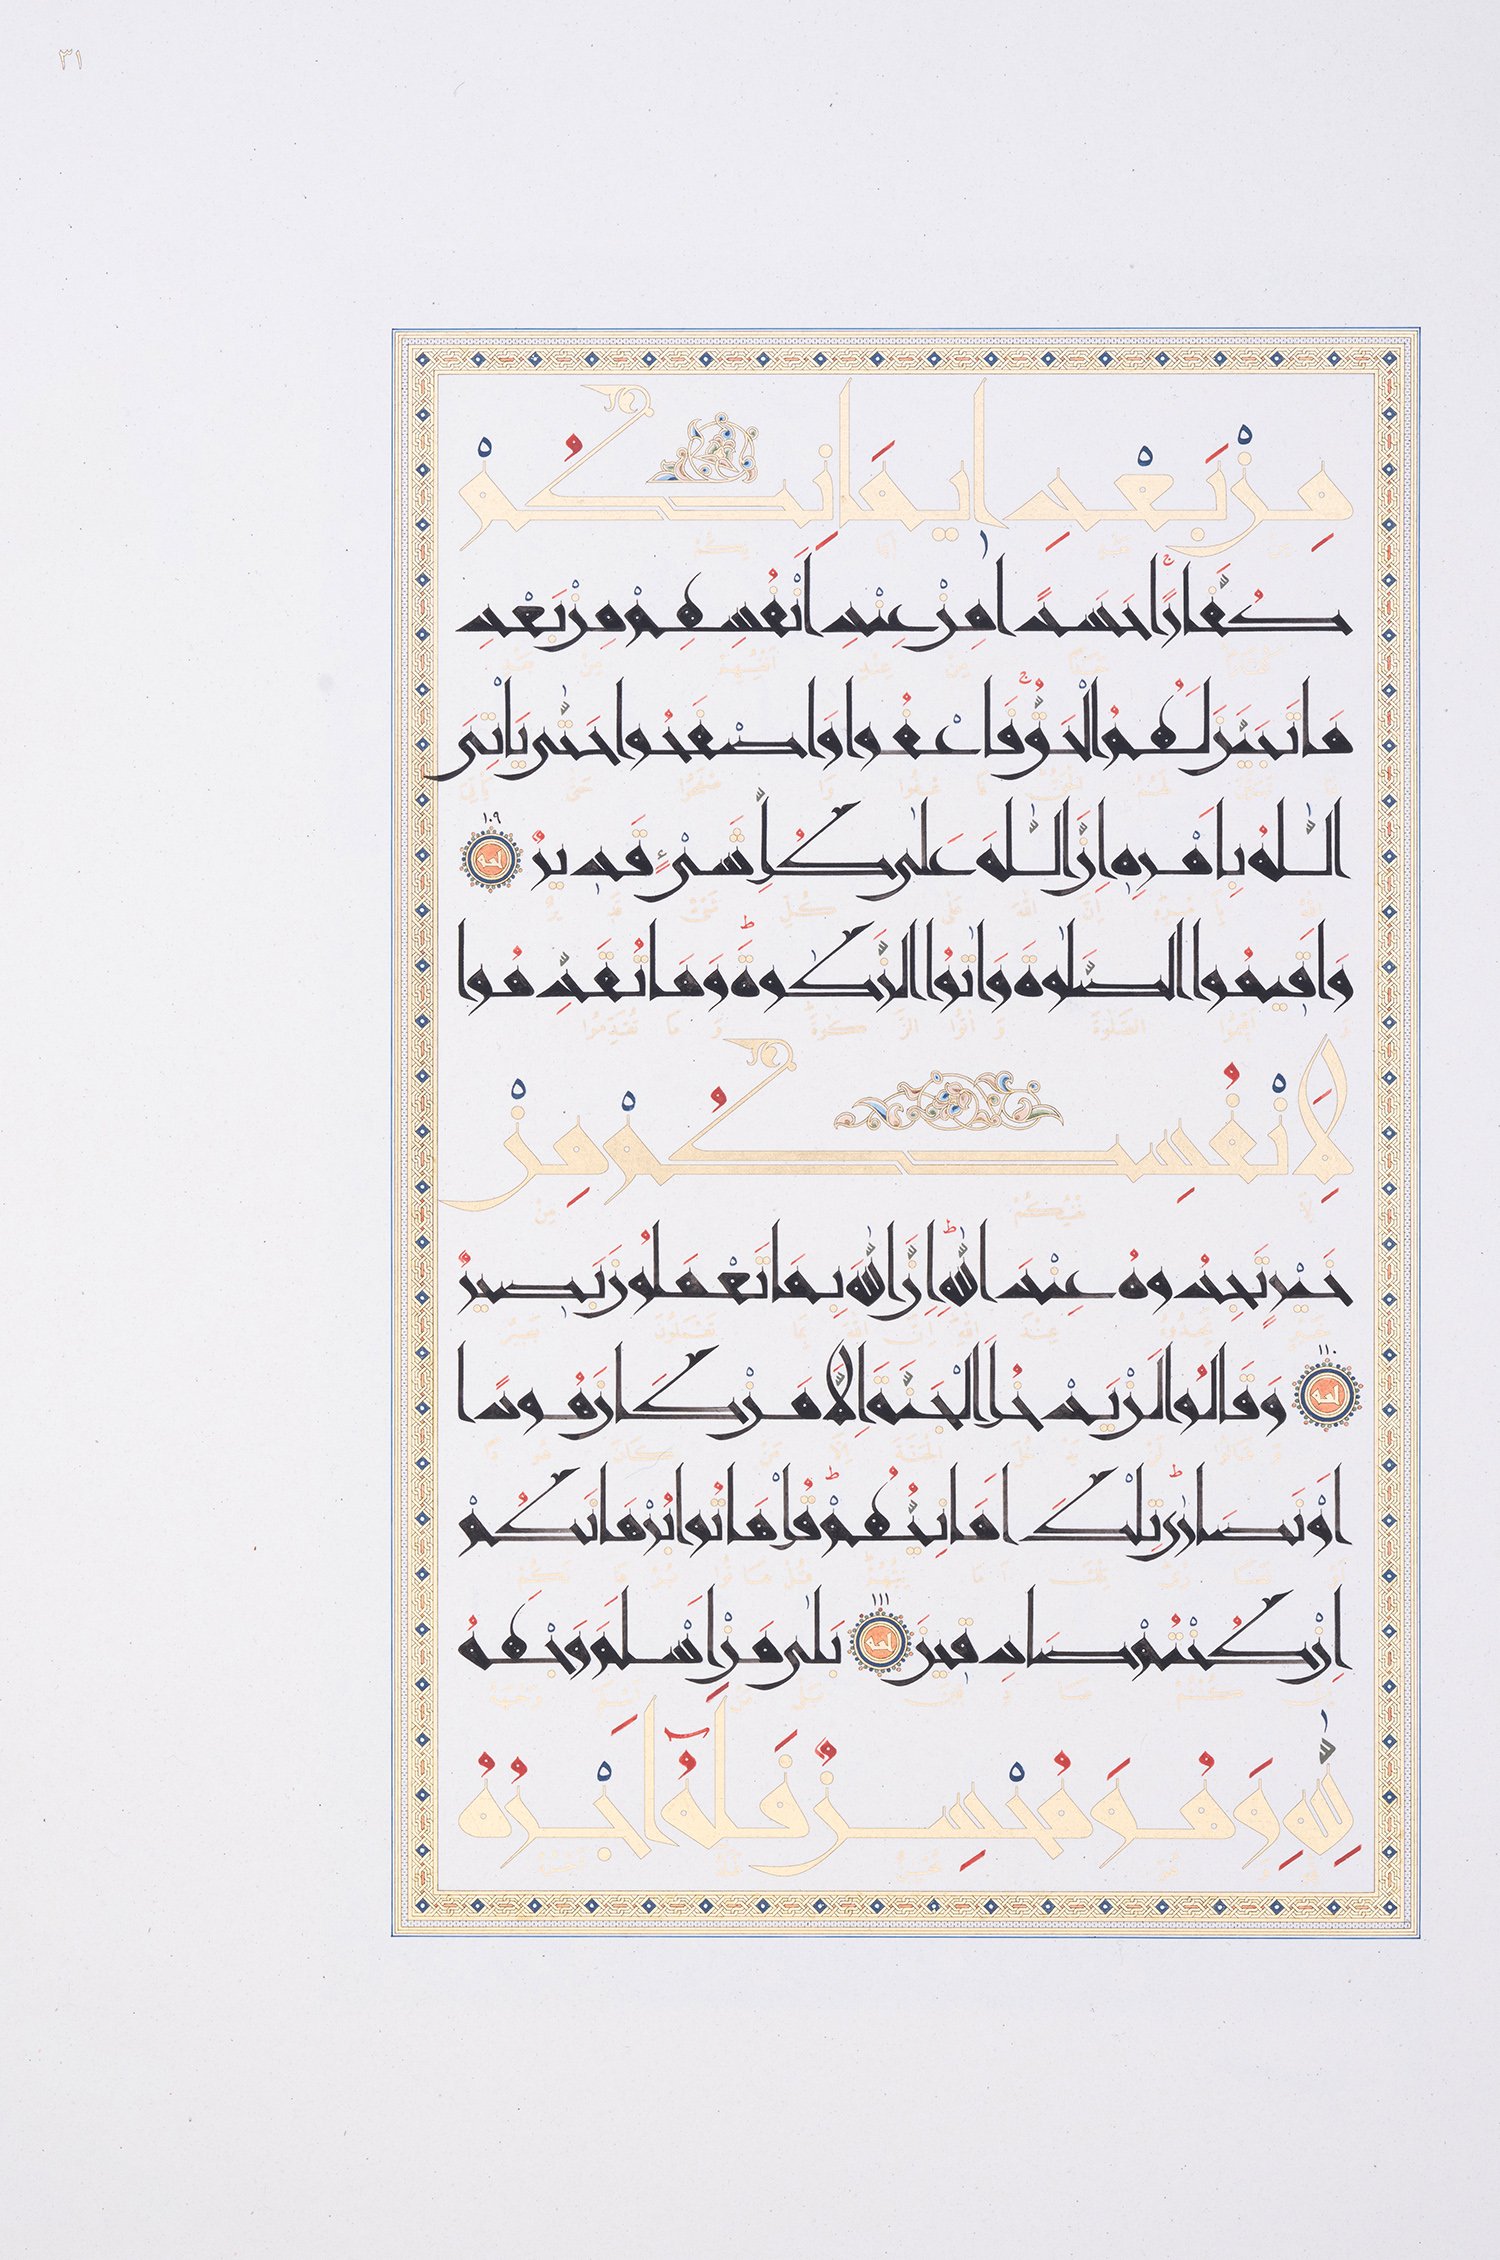 ٣١
مِنْ بَعْدِ اِيمَانِكُمْ
كُفَّارًا حَسَدًا مِنْ عِنْدِ اَنْفُسِهِمْ مِنْ بَعْدِ
مَا تَبَيَّنَ لَهُمُ الْحَقُّ فَاعْفُوا وَاصْفَحُوا حَتّٰى يَاْتِىَ
اللّٰهُ بِاَمْرِهِ اِنَّ اللّٰهَ عَلٰى كُلِّ شَىْءٍ قَدِيرٌ ١٠٩
وَاَقِيمُوا الصَّلٰوةَ وَاٰتُوا الزَّكٰوةَ وَمَا تُقَدِّمُوا
لِاَنْفُسِكُمْ مِنْ
خَيْرٍ تَجِدُوهُ عِنْدَ اللّٰهِ اِنَّ اللّٰهَ بِمَا تَعْمَلُونَ بَصِيرٌ
١١٠ وَقَالُوا لَنْ يَدْخُلَ الْجَنَّةَ اِلَّا مَنْ كَانَ هُودًا
اَوْ نَصَارٰى تِلْكَ اَمَانِيُّهُمْ قُلْ هَاتُوا بُرْهَانَكُمْ
اِنْ كُنْتُمْ صَادِقِينَ ١١١ بَلٰى مَنْ اَسْلَمَ وَجْهَهُ
لِلّٰهِ وَهُوَ مُحْسِنٌ فَلَهُٓ اَجْرُهُ